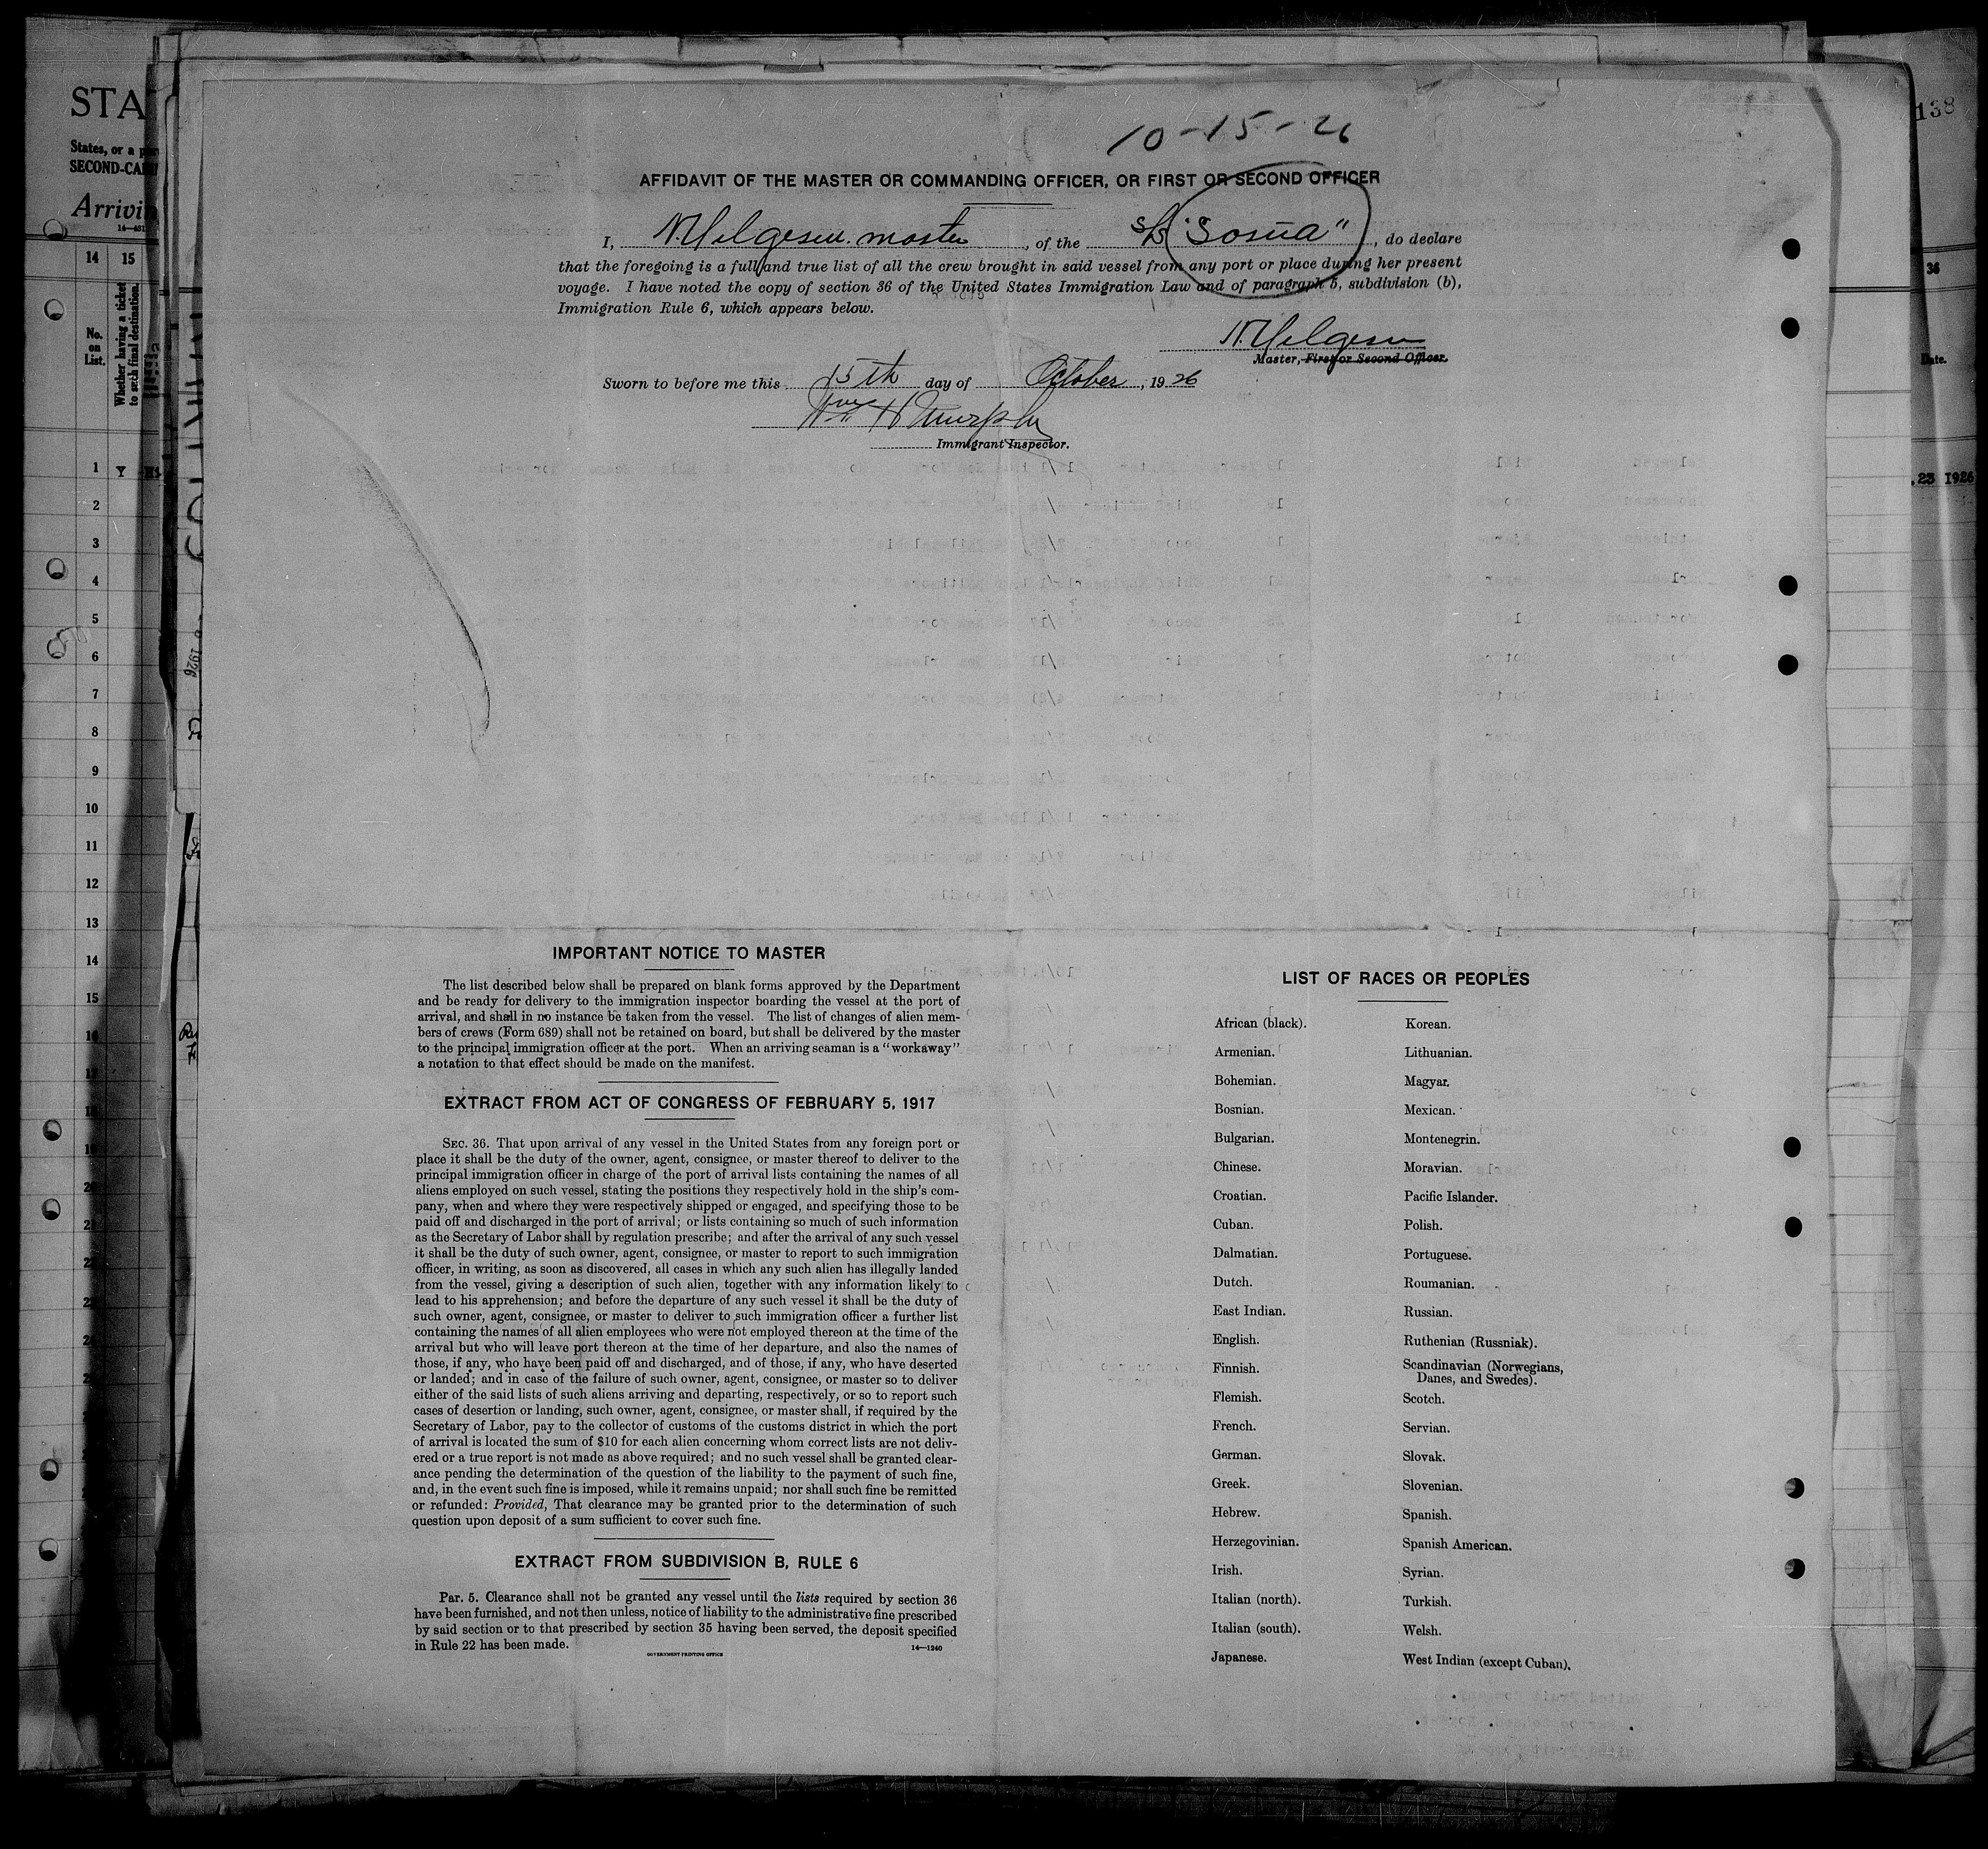 10-15-26
AFFIDAVIT OF THE MASTER OR COMMANDING OFFICER, OR FIRST OR SECOND OFFICER
I, N. Helgesen. master, of the SS "Sosua", do declare
that the foregoing is a full and true list of all the crew brought in said vessel from any port or place during her present
voyage. I have noted the copy of section 36 of the United States Immigration Law and of paragraph 5, subdivision (b),
Immigration Rule 6, which appears below.
N. Helgesen
Master, First or Second Officer.
Sworn to before me this 15th day of October, 1926
Wm H Murphy
Immigrant Inspector.
IMPORTANT NOTICE TO MASTER
The list described below shall be prepared on blank forms approved by the Department
and be ready for delivery to the immigration inspector boarding the vessel at the port of
arrival, and shall in no instance be taken from the vessel. The list of changes of alien mem-
bers of crews (Form 689) shall not be retained on board, but shall be delivered by the master
to the principal immigration officer at the port. When an arriving seaman is a "workaway"
a notation to that effect should be made on the manifest.
EXTRACT FROM ACT OF CONGRESS OF FEBRUARY 5, 1917
SEC. 36. That upon arrival of any vessel in the United States from any foreign port or
place it shall be the duty of the owner, agent, consignee, or master thereof to deliver to the
principal immigration officer in charge of the port of arrival lists containing the names of all
aliens employed on such vessel, stating the positions they respectively hold in the ship's com-
pany, when and where they were respectively shipped or engaged, and specifying those to be
paid off and discharged in the port of arrival; or lists containing so much of such information
as the Secretary of Labor shall by regulation prescribe; and after the arrival of any such vessel
it shall be the duty of such owner, agent, consignee, or master to report to such immigration
officer, in writing, as soon as discovered, all cases in which any such alien has illegally landed
from the vessel, giving a description of such alien, together with any information likely to
lead to his apprehension; and before the departure of any such vessel it shall be the duty of
such owner, agent, consignee, or master to deliver to such immigration officer a further list
containing the names of all alien employees who were not employed thereon at the time of the
arrival but who will leave port thereon at the time of her departure, and also the names of
those, if any, who have been paid off and discharged, and of those, if any, who have deserted
or landed; and in case of the failure of such owner, agent, consignee, or master so to deliver
either of the said lists of such aliens arriving and departing, respectively, or so to report such
cases of desertion or landing, such owner, agent, consignee, or master shall, if required by the
Secretary of Labor, pay to the collector of customs of the customs district in which the port
of arrival is located the sum of $10 for each alien concerning whom correct lists are not deliv-
ered or a true report is not made as above required; and no such vessel shall be granted clear-
ance pending the determination of the question of the liability to the payment of such fine,
and, in the event such fine is imposed, while it remains unpaid; nor shall such fine be remitted
or refunded: Provided, That clearance may be granted prior to the determination of such
question upon deposit of a sum sufficient to cover such fine.
EXTRACT FROM SUBDIVISION B, RULE 6
Par. 5. Clearance shall not be granted any vessel until the lists required by section 36
have been furnished, and not then unless, notice of liability to the administrative fine prescribed
by said section or to that prescribed by section 35 having been served, the deposit specified
in Rule 22 has been made. 14—1240
GOVERNMENT PRINTING OFFICE
LIST OF RACES OR PEOPLES
African (black).
Armenian.
Bohemian.
Bosnian.
Bulgarian.
Chinese.
Croatian.
Cuban.
Dalmatian.
Dutch.
East Indian.
English.
Finnish.
Flemish.
French.
German.
Greek.
Hebrew.
Herzegovinian.
Irish.
Italian (north).
Italian (south).
Japanese.
Korean.
Lithuanian.
Magyar.
Mexican.
Montenegrin.
Moravian.
Pacific Islander.
Polish.
Portuguese.
Roumanian.
Russian.
Ruthenian (Russniak).
Scandinavian (Norwegians,
Danes, and Swedes).
Scotch.
Servian.
Slovak.
Slovenian.
Spanish.
Spanish American.
Syrian.
Turkish.
Welsh.
West Indian (except Cuban).
STA
States, or a
SECOND-CA
Arrivi
14 15
No.
on
List.
Whether having a ticket
to such final destination.
1 Y
2
3
4
5
6
7
8
9
10
11
12
13
14
15
138
36
Date.
23 1926